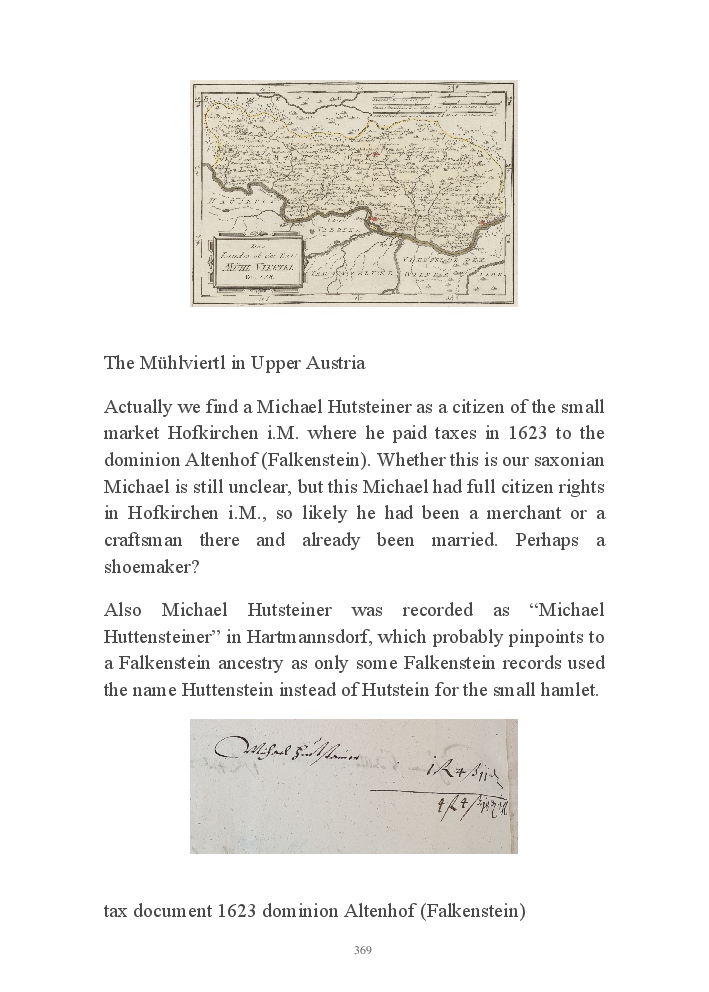 MÜHL VIERTEL
The Mühlviertl in Upper Austria
Actually we find a Michael Hutsteiner as a citizen of the small
market Hofkirchen i.M. where he paid taxes in 1623 to the
dominion Altenhof (Falkenstein). Whether this is our saxonian
Michael is still unclear, but this Michael had full citizen rights
in Hofkirchen i.M., so likely he had been a merchant or a
craftsman there and already been married. Perhaps a
shoemaker?
Also Michael Hutsteiner was recorded as “Michael
Huttensteiner” in Hartmannsdorf, which probably pinpoints to
a Falkenstein ancestry as only some Falkenstein records used
the name Huttenstein instead of Hutstein for the small hamlet.
Michael
tax document 1623 dominion Altenhof (Falkenstein)
369